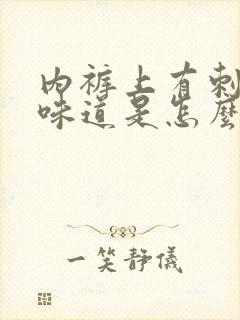 内裤上有刺
味道是怎麼
一笑靜儀